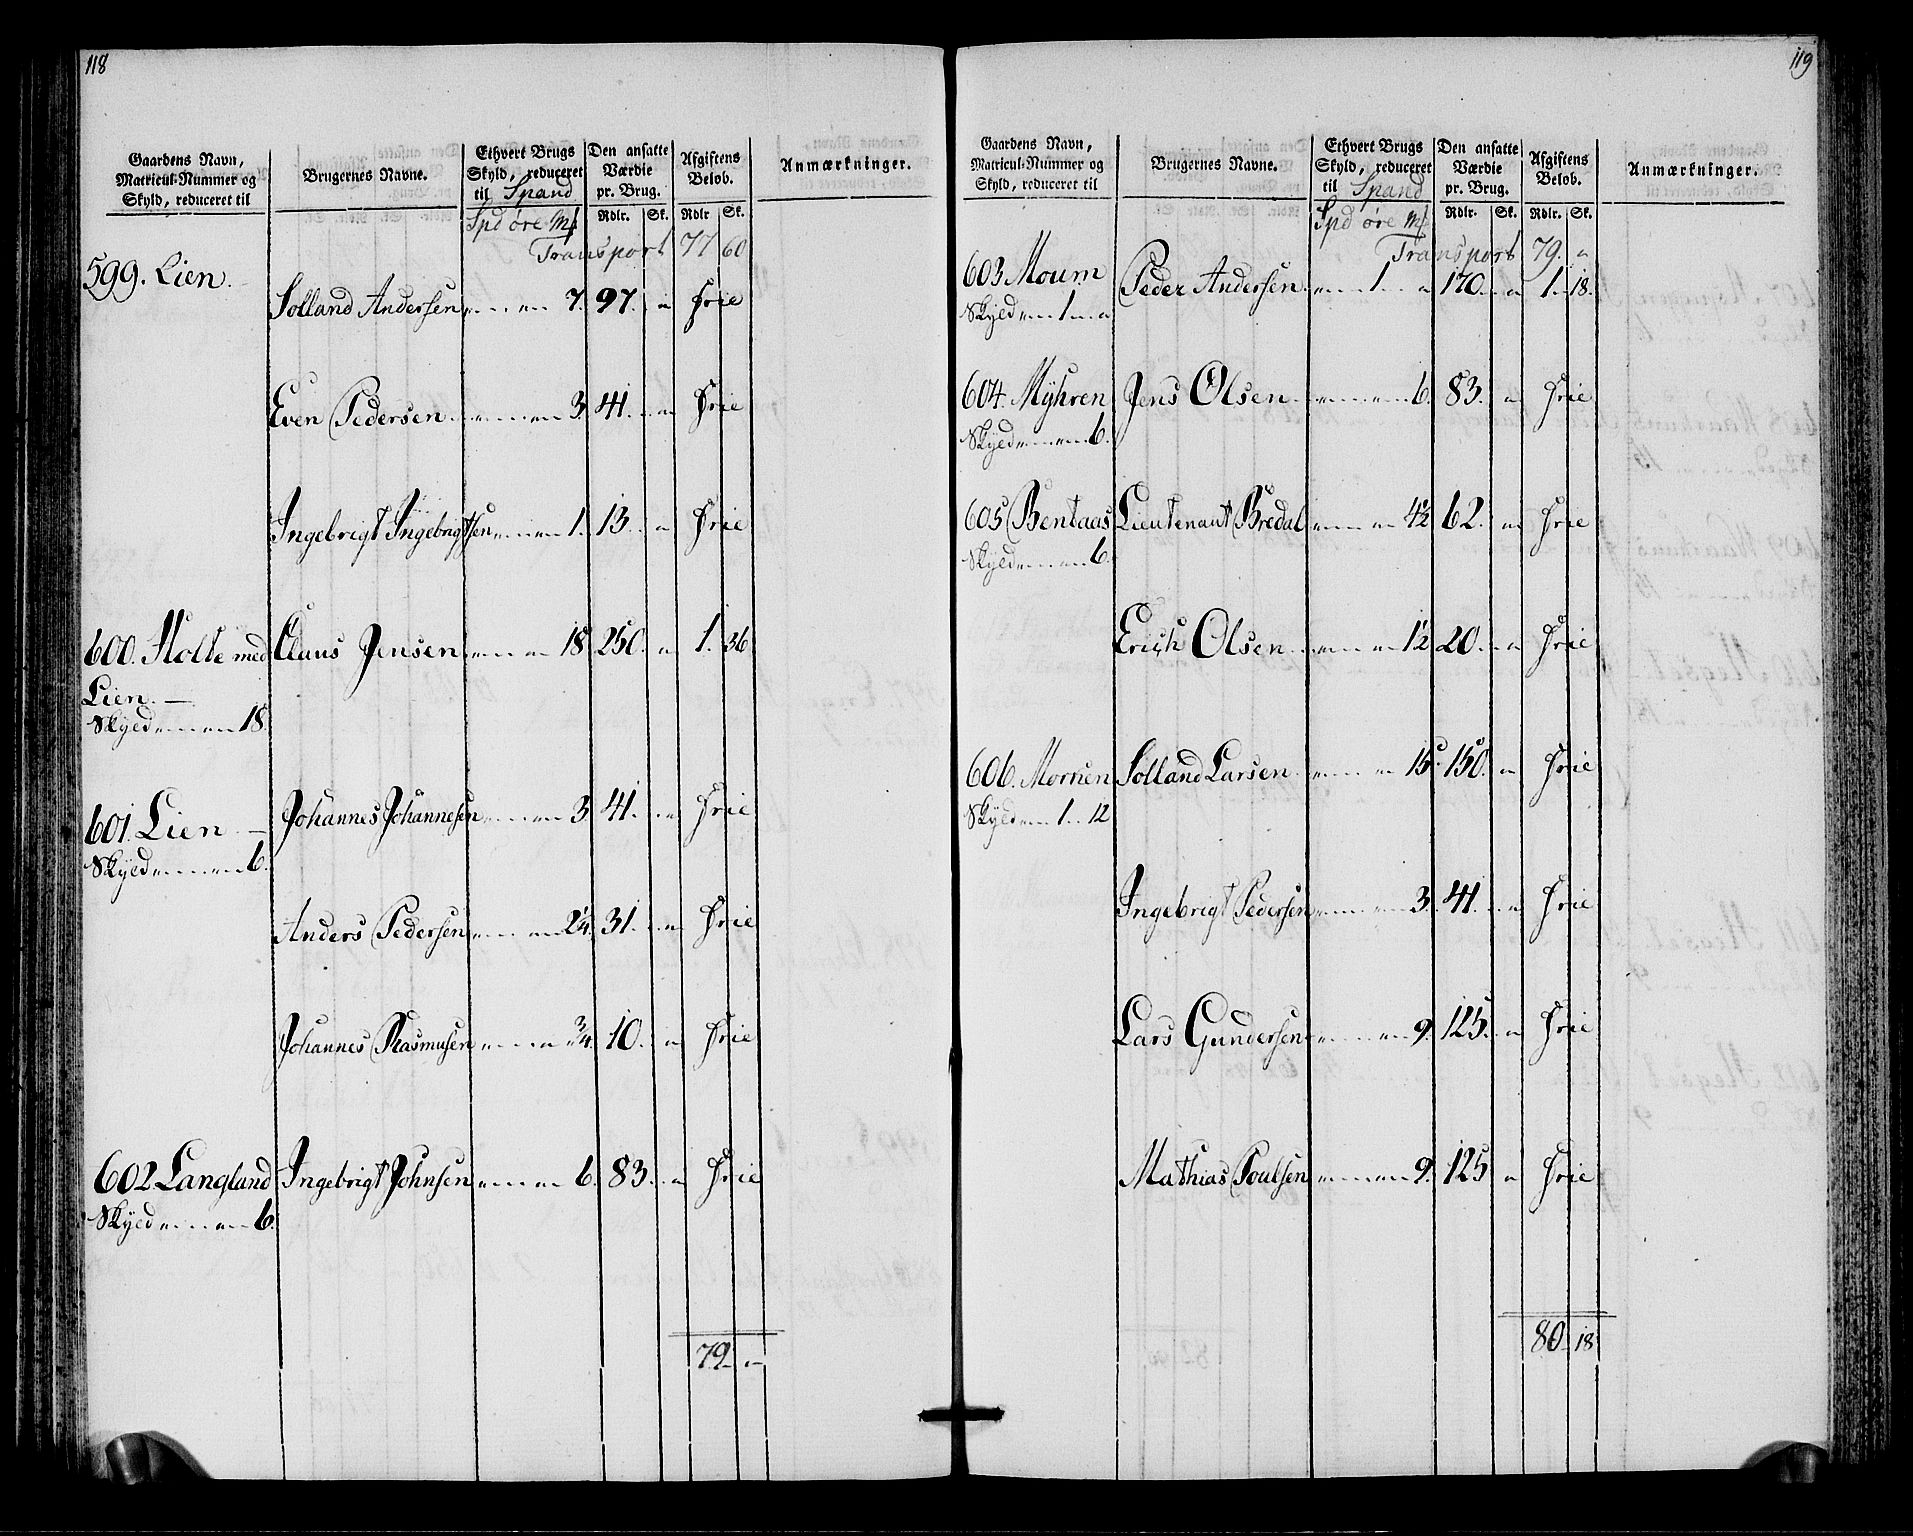 118
Gaardens Navn, Matricul-Nummer og Skyld, reduceret til | Brugernes Navne. | Ethvert Brugs Skyld, reduceret til Spand | Den ansatte Værdie pr. Brug. | Afgiftens Beløb. | Anmærkninger.
Spd øre ml | Rdlr. | Sk. | Rdlr | Sk.
Transport 77 60
599. Lien. Solland Andersen 7. 97. " Frie
Even Pedersen 3. 41. " Frie
Ingebrigt Ingebrigtsen 1. 13. " Frie
600. Holte med Claus Jensen 18. 250. " 1. 36
Lien. —
Skyld 18.
601. Lien — Johannes Johannesen 3. 41. " Frie
Skyld 6.
Anders Pedersen 2¼. 31. " Frie
Johannes Rasmusen ¾. 10. " Frie
602 Langland Ingebrigt Johnsen 6. 83. " Frie
Skyld 6.
79 "
119
Gaardens Navn, Matricul-Nummer og Skyld, reduceret til | Brugernes Navne. | Ethvert Brugs Skyld, reduceret til Spand | Den ansatte Værdie pr. Brug. | Afgiftens Beløb. | Anmærkninger.
Spd øre ml | Rdlr. | Sk. | Rdlr. | Sk.
Transport 79. "
603. Moum Peder Andersen 1 " 170. " 1. 18.
Skyld 1 "
604. Myhren Jens Olsen 6. 83. " Frie
Skyld 6.
605 Bentaas Lieutenant Bredal 4½ 62. " Frie
Skyld 6.
Erich Olsen 1½ 20. " Frie
606. Morsen Solland Larsen 15. 150. " Frie
Skyld 1 12
Ingebrigt Pedersen 3. 41. " Frie
Lars Gundersen 9. 125. " Frie
Mathias Poulsen 9. 125 " Frie
80 18